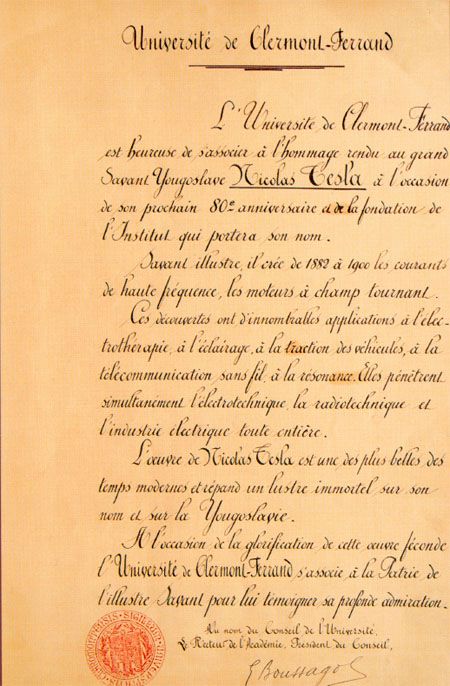 Université de Clermont-Ferrand
L'Université de Clermont-Ferrand
est heureuse de s'associer à l'hommage rendu au grand
Savant Yougoslave Nicolas Tesla à l'occasion
de son prochain 80e anniversaire et de la fondation de
l'Institut qui portera son nom.
Savant illustre, il crée de 1882 à 1900 les courants
de haute fréquence, les moteurs à champ tournant.
Ces découvertes ont d'innombrables applications à l'élec-
trothérapie, à l'éclairage, à la traction des véhicules, à la
télécommunication sans fil, à la résonance. Elles pénètrent
simultanément l'électrotechnique, la radiotechnique et
l'industrie électrique toute entière.
L'œuvre de Nicolas Tesla est une des plus belles des
temps modernes et répand un lustre immortel sur son
nom et sur la Yougoslavie.
A l'occasion de la glorification de cette œuvre féconde
l'Université de Clermont-Ferrand s'associe, à la Patrie de
l'illustre Savant pour lui témoigner sa profonde admiration.
Au nom du Conseil de l'Université,
Le Recteur de l'Académie, Président du Conseil,